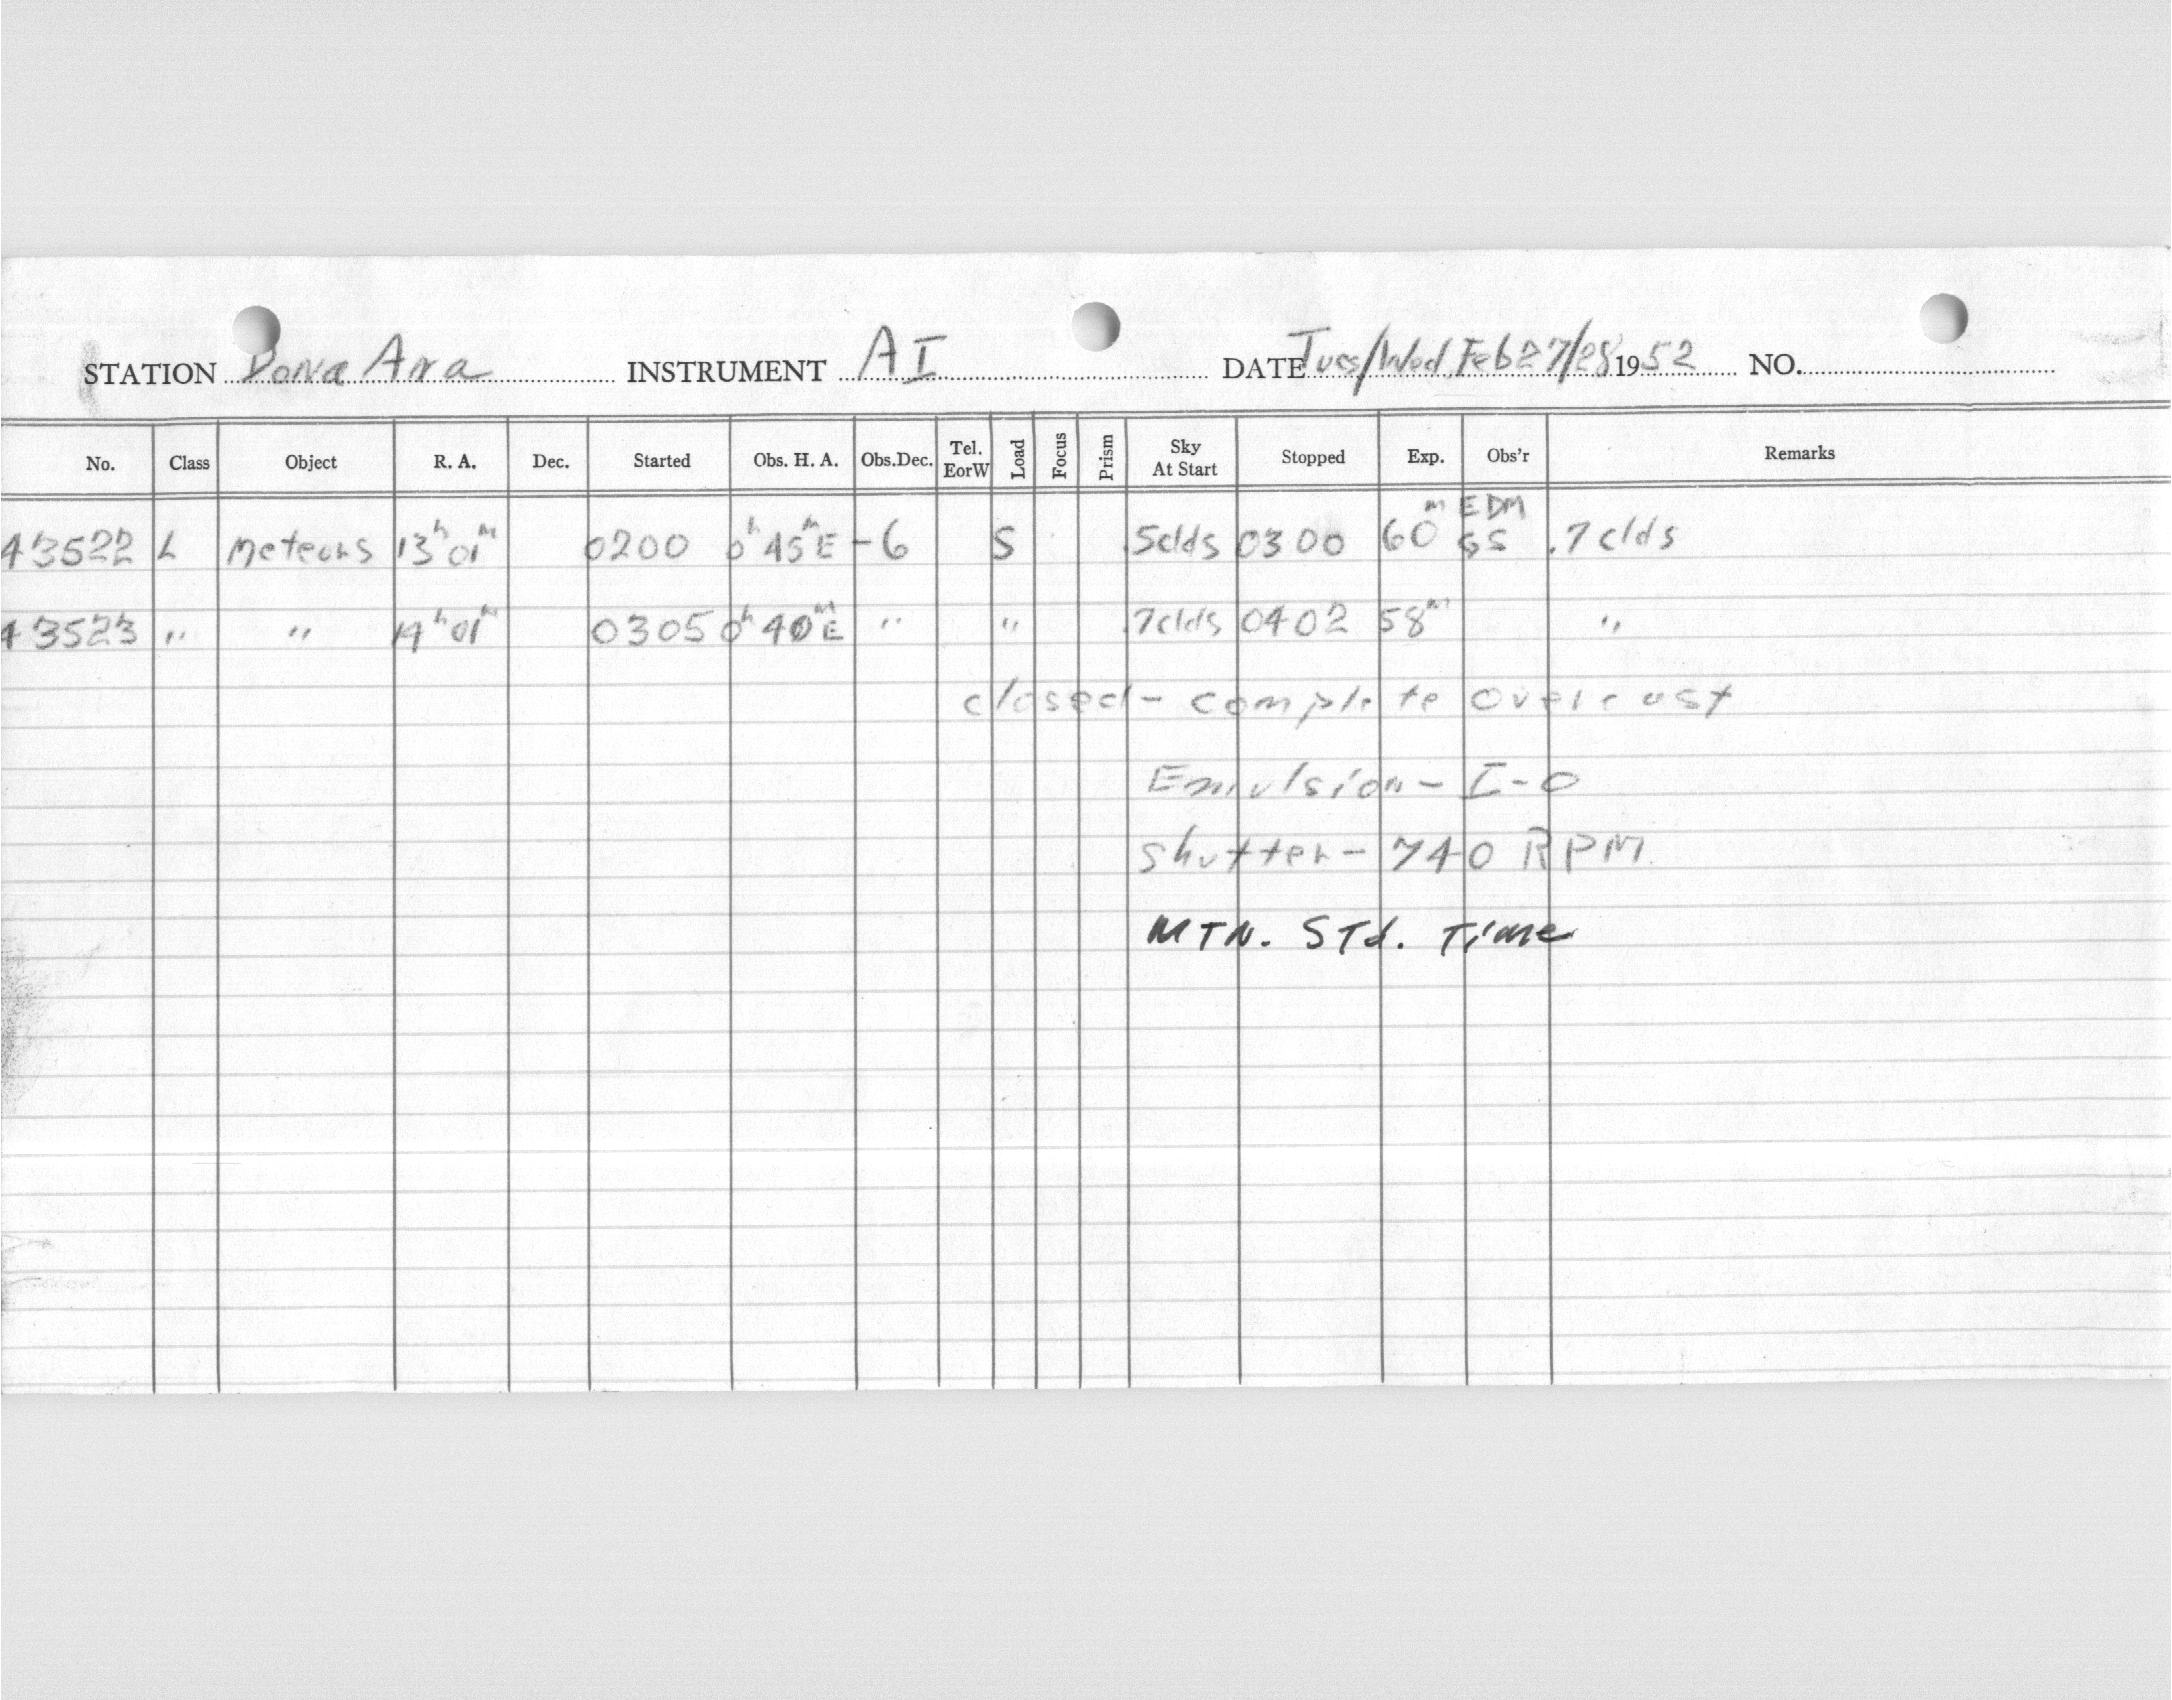 STATION Dona Ana INSTRUMENT AI DATE Tues/Wed. Feb 27/28 1952 NO.
No. Class Object R. A. Dec. Started Obs. H. A. Obs.Dec. Tel. EorW Load Focus Prism Sky At Start Stopped Exp. Obs'r Remarks
43522 L Meteors 13h 01m 0200 0h 45m E -6 S .5clds 0300 60m EDM SS .7 clds
43523 " " 14h 01m 0305 0h 40m E " " .7clds 0402 58m "
closed - complete overcast
Emulsion - I-O
shutter - 740 RPM
MTN. STd. Time